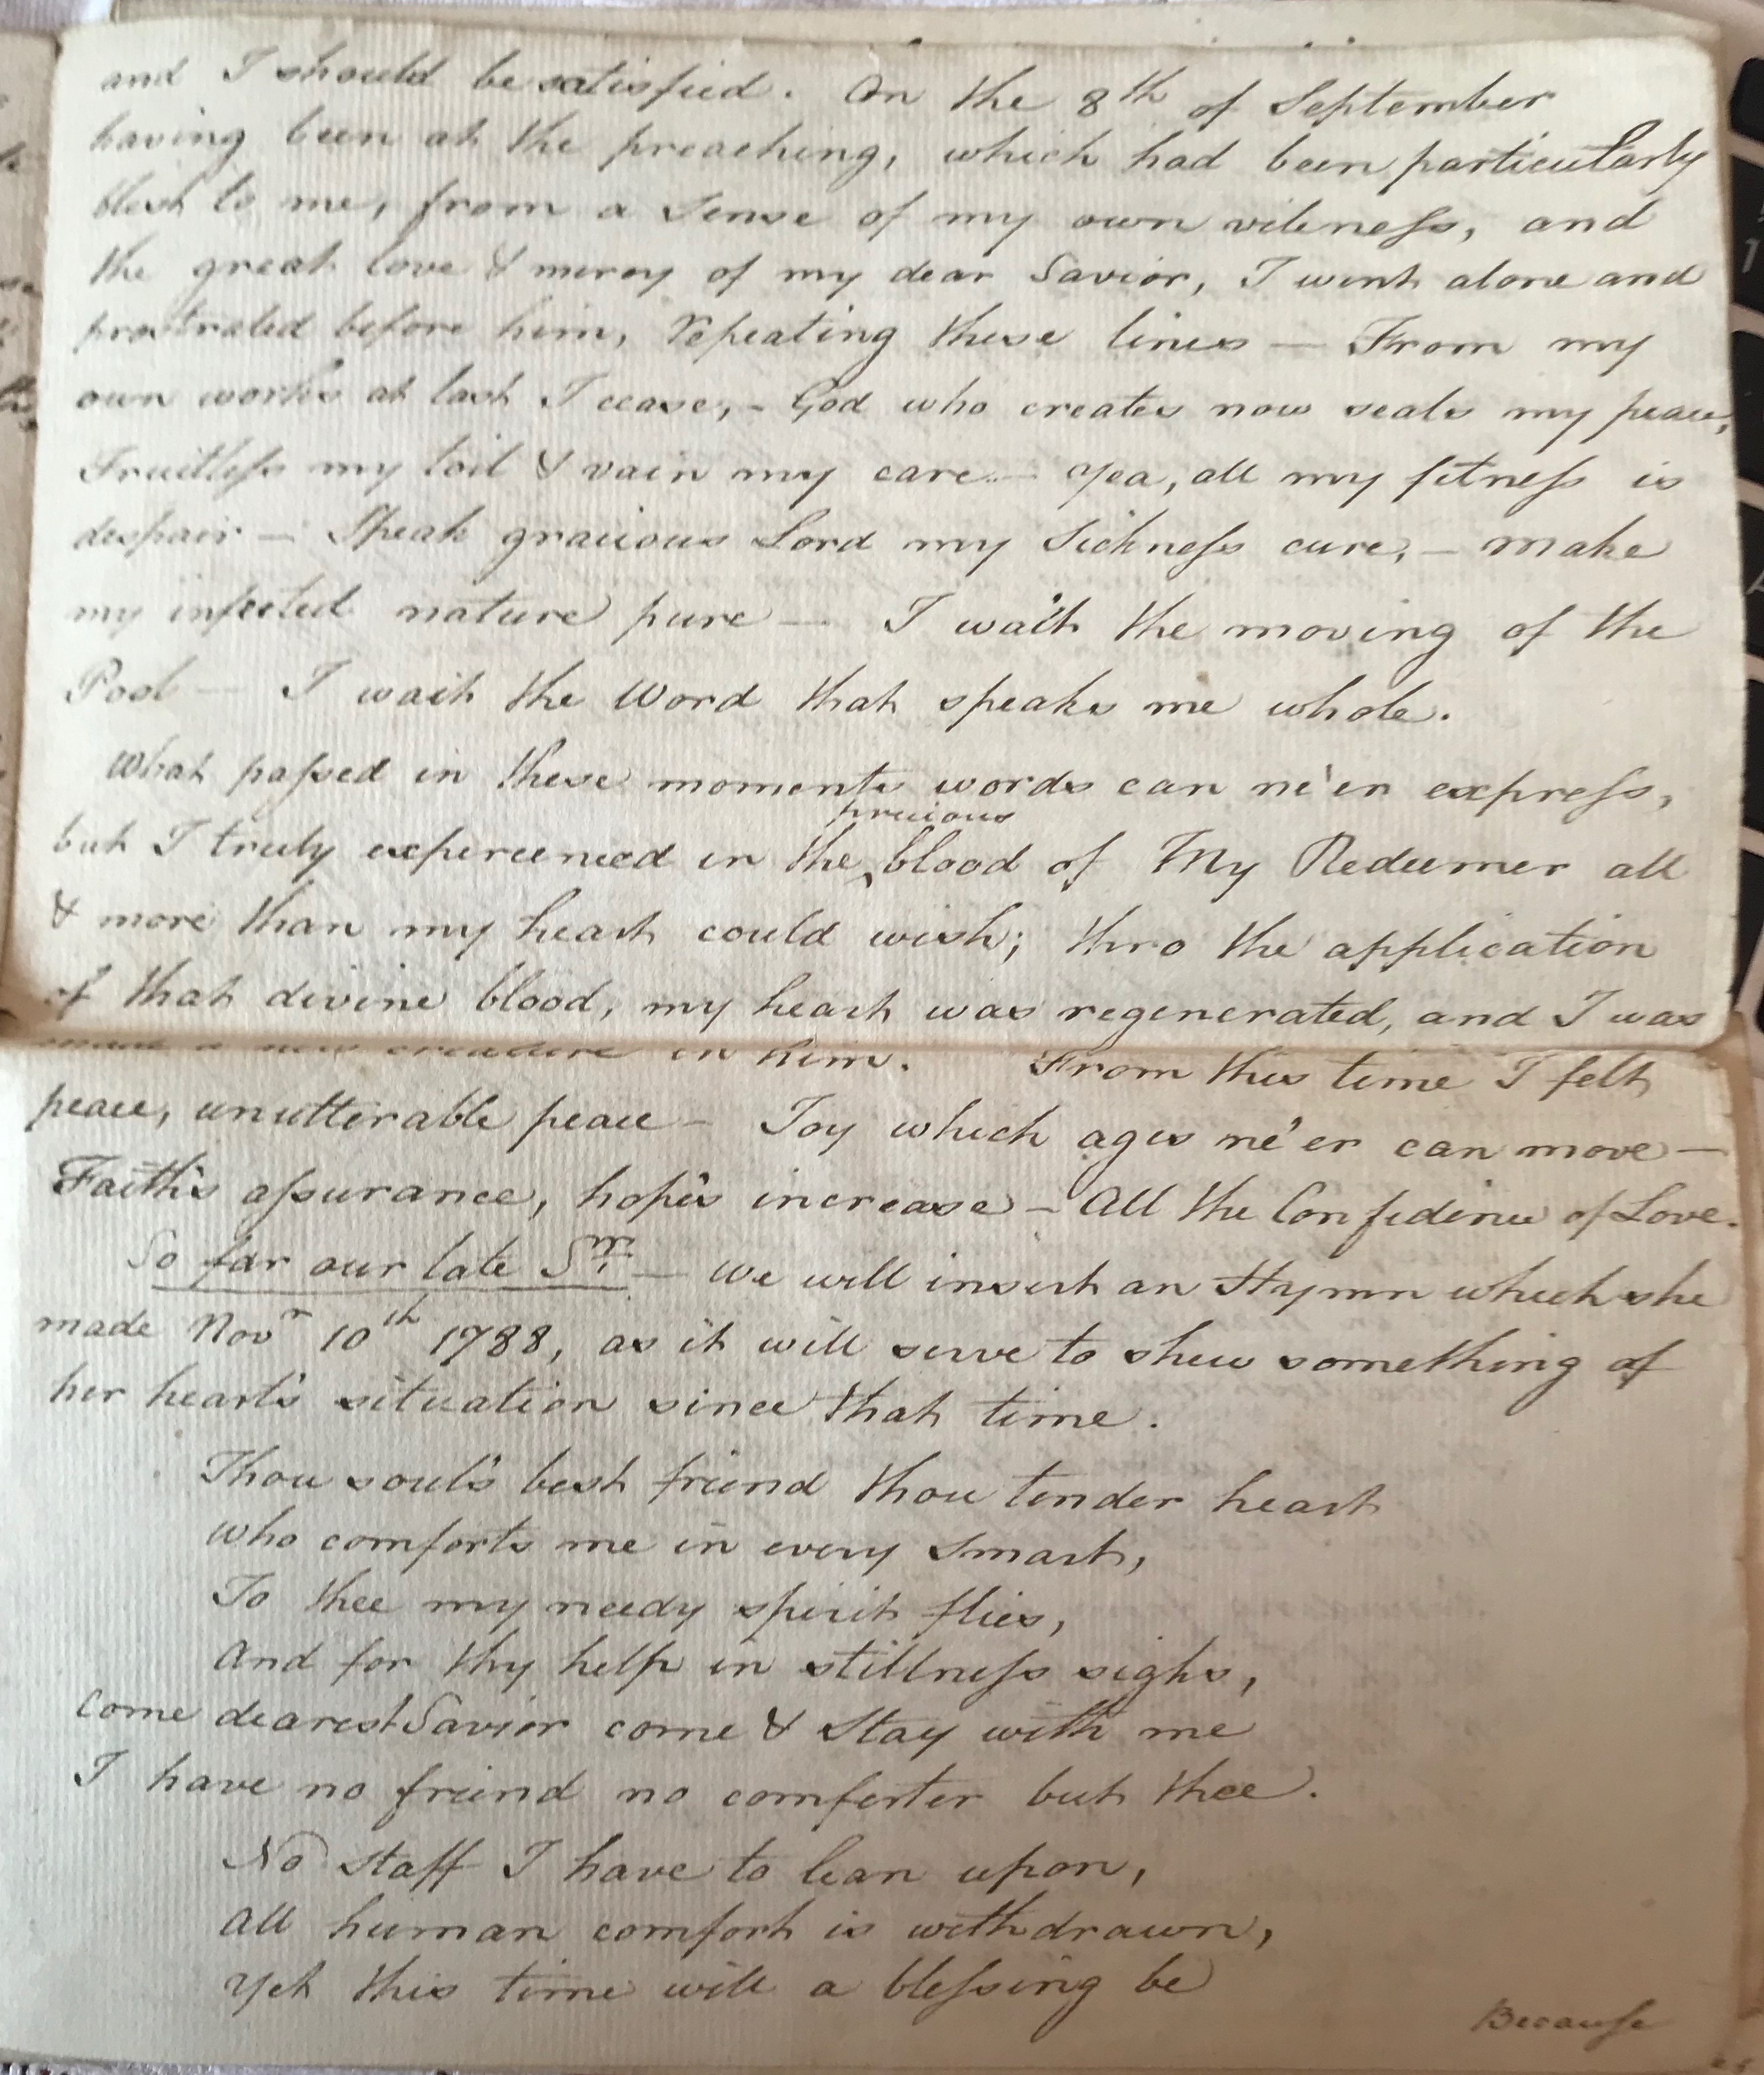 and I should be satisfied. On the 8th of September
having been at the preaching, which had been particularly
blest to me, from a sense of my own vileness, and
the great love & mercy of my dear Savior, I went alone and
prostrated before him, repeating these lines — From my
own works at last I cease, - God who creates now seals my peace,
Fruitless my toil & vain my care — Yea, all my fitness is
despair — Speak gracious Lord my sickness cure, — make
my infected nature pure — I wait the moving of the
Pool — I wait the Word that speaks me whole.
What passed in these moments words can ne'er express,
precious
but I truly experienced in the ‸ blood of My Redeemer all
& more than my heart could wish; thro the application
of that divine blood, my heart was regenerated, and I was
made a new creature in him. From this time I felt
peace, unutterable peace — Joy which ages ne'er can move —
Faith's assurance, hope's increase — All the Confidence of Love.
So far our late Sr. — We will insert an Hymn which she
made Novr 10th 1788, as it will serve to shew something of
her heart's situation since that time.
Thou soul's best friend thou tender heart
who comforts me in every smart,
To thee my needy spirit flies,
And for thy help in stillness sighs,
Come dearest Savior come & stay with me
I have no friend no comforter but thee.
No staff I have to lean upon,
All human comfort is withdrawn,
Yet this time will a blessing be
Because